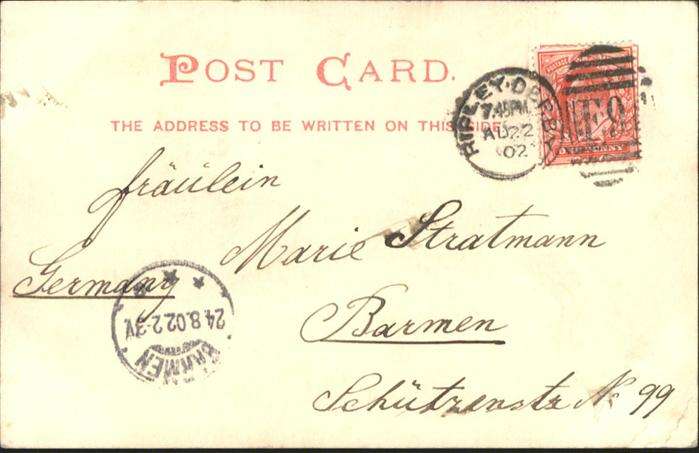 POST CARD.
THE ADDRESS TO BE WRITTEN ON THIS SIDE.
RIPLEY·DERBY
7.45PM
AU22
02
E9
Fräulein
Marie Stratmann
Germany
Barmen
Schützenstr No. 99
BARMEN
24.8.02.2-3V